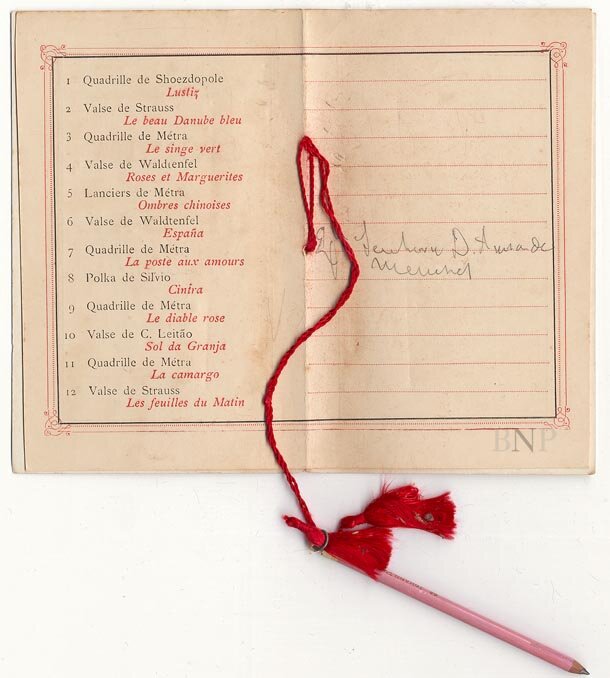 1 Quadrille de Shoezdopole
Lustiz
2 Valse de Strauss
Le beau Danube bleu
3 Quadrille de Métra
Le singe vert
4 Valse de Waldtenfel
Roses et Marguerites
5 Lanciers de Métra
Ombres chinoises
6 Valse de Waldtenfel
España
7 Quadrille de Métra
La poste aux amours
8 Polka de Silvio
Cintra
9 Quadrille de Métra
Le diable rose
10 Valse de C. Leitão
Sol da Granja
11 Quadrille de Métra
La camargo
12 Valse de Strauss
Les feuilles du Matin
D.
BNP